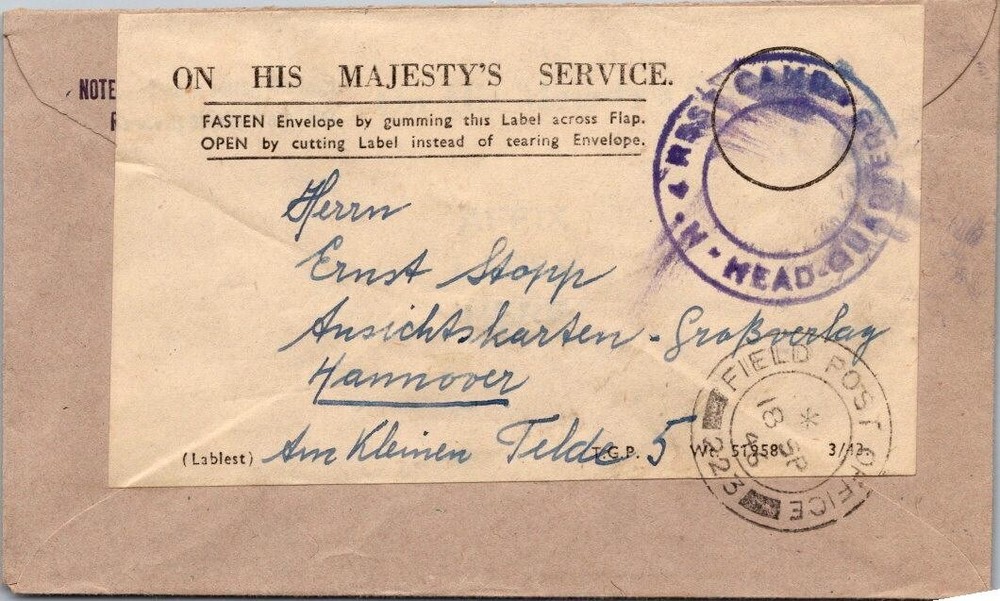 NOTE
ON HIS MAJESTY'S SERVICE.
FASTEN Envelope by gumming this Label across Flap.
OPEN by cutting Label instead of tearing Envelope.
CAMP
HEAD-QUARTERS
Herrn
Ernst Stopp
Ansichtskarten-Großverlag
Hannover
Am Kleinen Felde 5
(Lablest)
T.G.P.
Wt. 51958
3/43.
FIELD POST OFFICE
223
18 SP
46